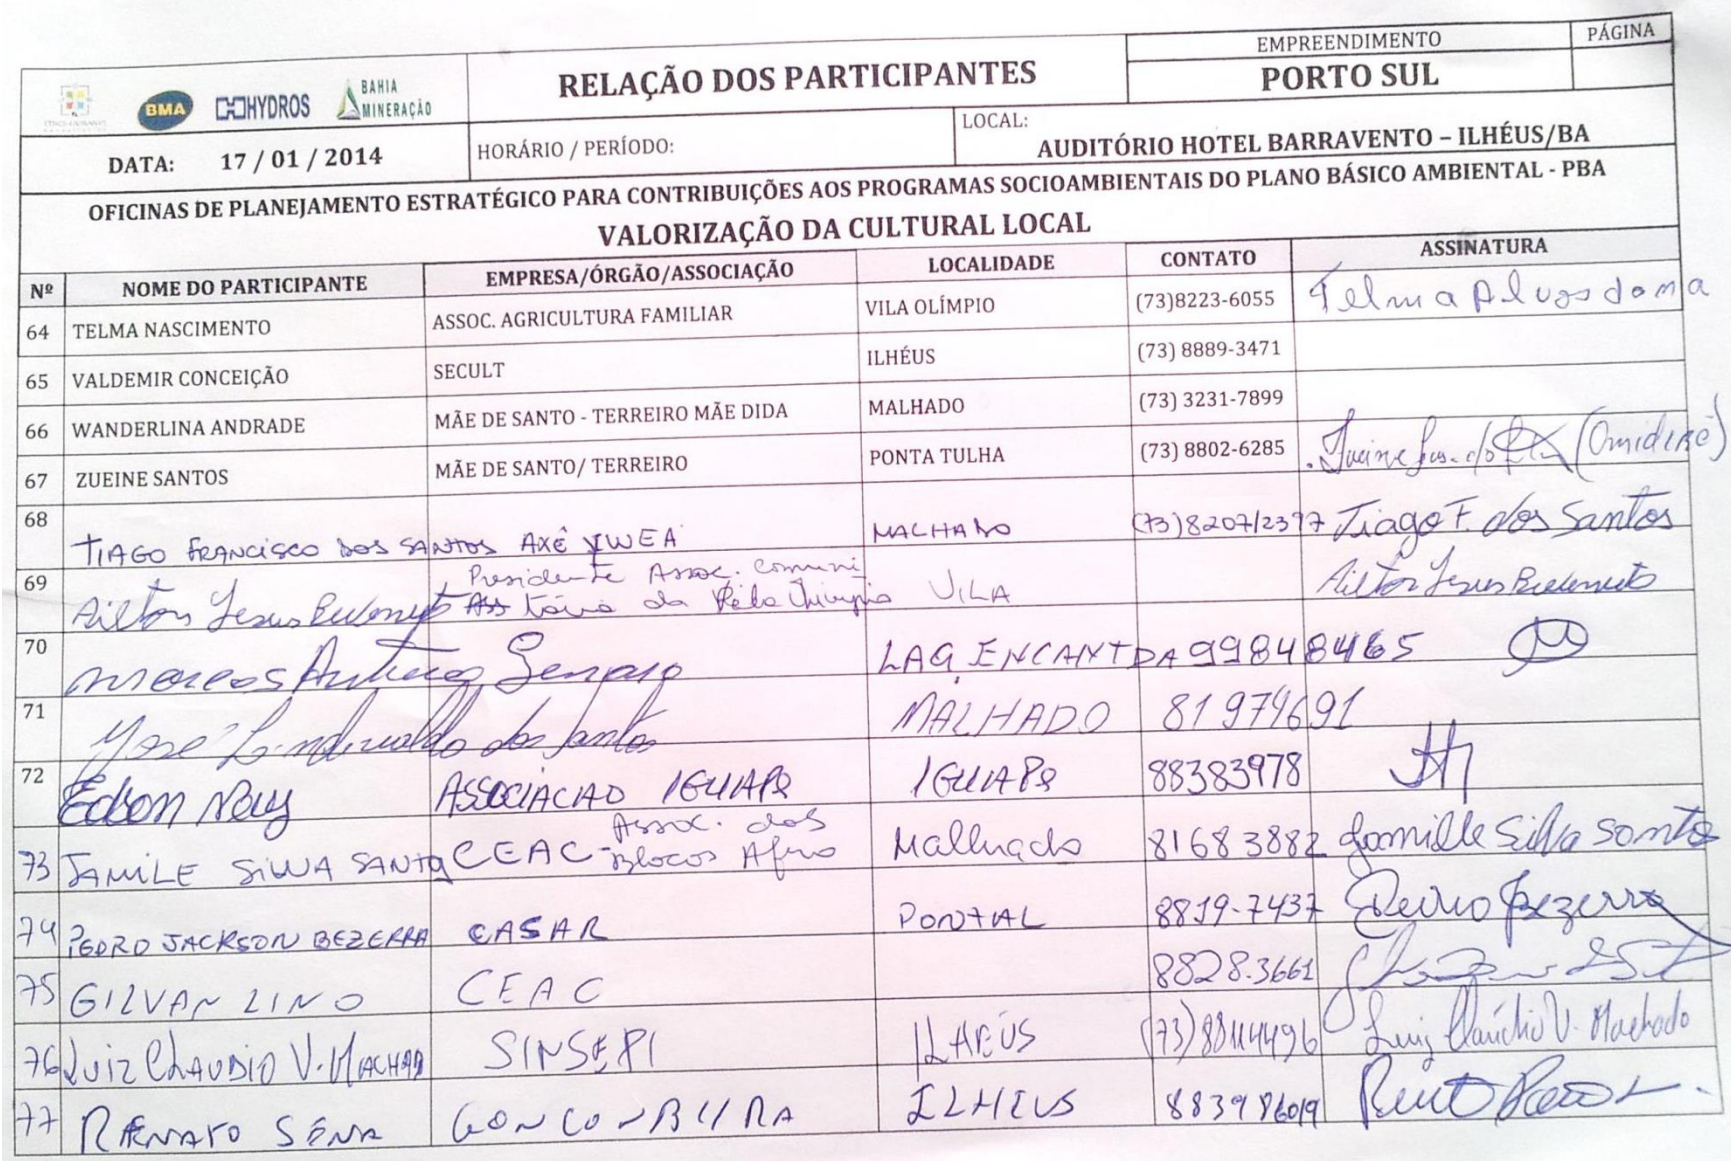 BMA HYDROS BAHIA MINERAÇÃO
RELAÇÃO DOS PARTICIPANTES
EMPREENDIMENTO
PÁGINA
PORTO SUL
DATA: 17 / 01 / 2014
HORÁRIO / PERÍODO:
LOCAL:
AUDITÓRIO HOTEL BARRAVENTO – ILHÉUS/BA
OFICINAS DE PLANEJAMENTO ESTRATÉGICO PARA CONTRIBUIÇÕES AOS PROGRAMAS SOCIOAMBIENTAIS DO PLANO BÁSICO AMBIENTAL - PBA
VALORIZAÇÃO DA CULTURAL LOCAL
Nº NOME DO PARTICIPANTE EMPRESA/ÓRGÃO/ASSOCIAÇÃO LOCALIDADE CONTATO ASSINATURA
64 TELMA NASCIMENTO ASSOC. AGRICULTURA FAMILIAR VILA OLÍMPIO (73)8223-6055 Telma
65 VALDEMIR CONCEIÇÃO SECULT ILHÉUS (73) 8889-3471
66 WANDERLINA ANDRADE MÃE DE SANTO - TERREIRO MÃE DIDA MALHADO (73) 3231-7899
67 ZUEINE SANTOS MÃE DE SANTO/ TERREIRO PONTA TULHA (73) 8802-6285
68 TIAGO FRANCISCO DOS SANTOS AXÉ MALHADO (73)8207/2397 Tiago F. dos Santos
69 Ailton Jesus Presidente Assoc. comuni
tária da VILA Ailton Jesus
70 Marcos LAG ENCANTDA 99848465
71 José dos Santos MALHADO 81979691
72 Edson ASSOCIACAO IGUAPE IGUAPE 88383978
73 JAMILE SILVA SANTO CEAC - Assoc. dos
Blocos Afro Malhado 81683882 Jamille Silva Santos
74 PEDRO JACKSON BEZERRA CASAR PONTAL 8819-7437 Pedro Bezerra
75 GILVAN LINO CEAC 8828.3661
76 LUIZ CLAUDIO V. MACHAD SINSEPI ILHÉUS (73)88114496 Luiz Claúdio V. Machado
77 RENATO SENA GONGOMBIRA ILHEUS